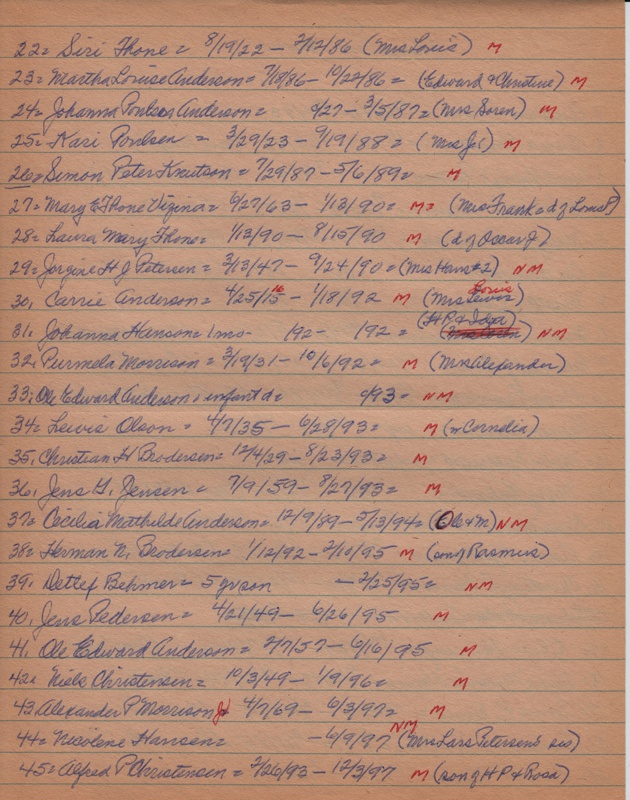 22= Siri Thone = 8/19/22 - 2/12/86 (Mrs Louis) M
23= Martha Louise Anderson = 7/18/86 - 10/22/86 = (Edward & Christine) M
24= Johanna Poulsen Anderson = c/27 - 3/5/87 = (Mrs Soren) M
25= Kari Poulsen = 3/29/23 - 9/19/88 = (Mrs J C) M
26= Simon Peter Knutson = 7/29/87 - 5/6/89 = M
27= Mary E Thone Vizina = 6/27/63 - 1/13/90 = M = (Mrs Frank = d of Louis P)
28= Laura Mary Thone = 1/13/90 - 8/15/90 M (d of Oscar J)
29= Jorgine H J Petersen = 3/13/47 - 9/24/90 = (Mrs Hans #2) NM
30, Carrie Anderson = 4/25/15 16 - 1/18/92 M (Mrs Lewis) Louis
31, Johanna Hanson = 1 mo - 192 - 192 = (H P & Inga) NM
32, Purmela Morrison = 3/19/31 - 10/6/92 = M (Mrs Alexander)
33, Ole Edward Anderson, infant d = c/93 = NM
34= Lewis Olson = 4/7/35 - 6/28/93 = M (Cornelia)
35, Christian H Brodersen = 12/4/29 - 8/23/93 = M
36, Jens G. Jensen = 7/9/59 - 8/27/93 = M
37= Cecilia Mathilde Anderson = 12/9/89 - 5/13/94 = (Ole & M) NM
38= Herman N. Brodersen = 1/12/92 - 2/10/95 M (son of Rasmus)
39, Detlef Behmer = 5 yr son - 2/25/95 = NM
40, Jens Pedersen = 4/21/49 - 6/26/95 M
41, Ole Edward Anderson = 2/7/57 - 6/16/95 M
42, Niels Christensen = 10/3/49 - 1/9/96 = M
43, Alexander P Morrison Jr 4/7/69 - 6/3/97 = M
44= Nicolene Hansen = - 6/9/97 NM (Mrs Lars Petersen's sis)
45= Alfred P Christensen = 2/26/93 - 12/3/97 M (son of H P & Rosa)